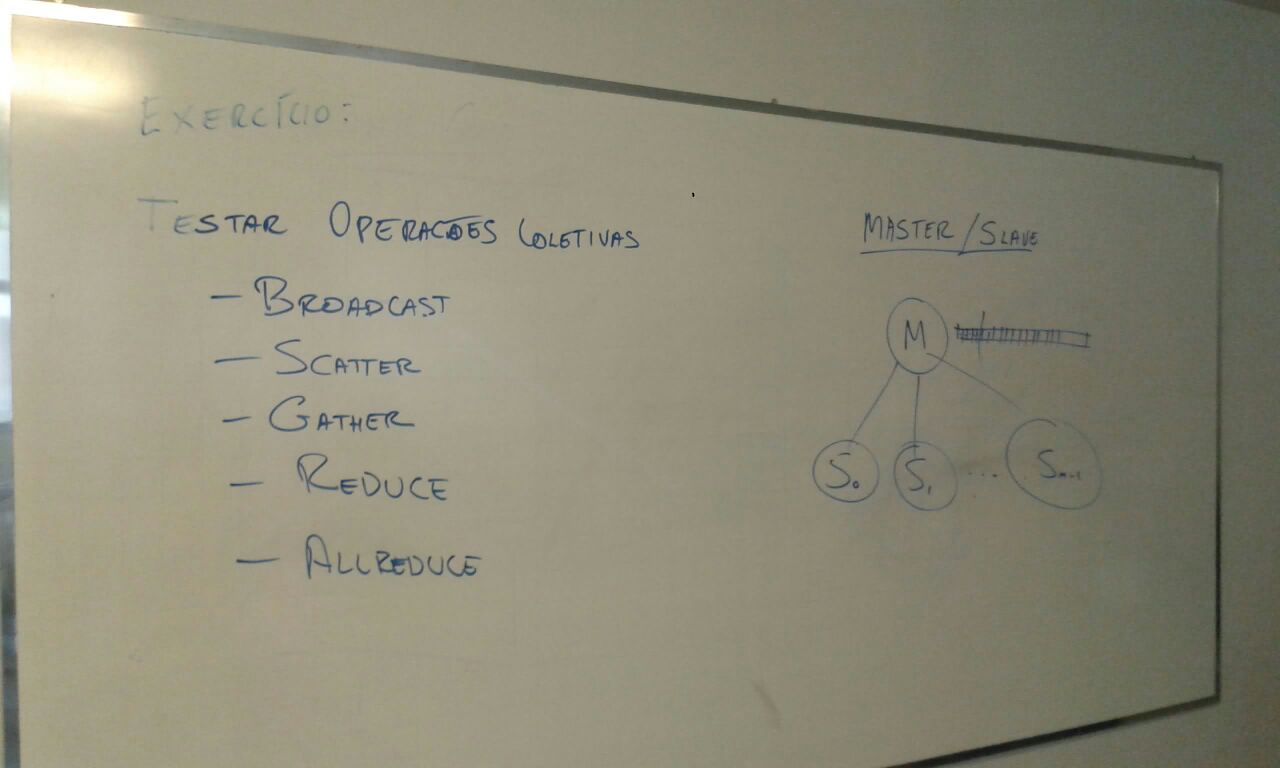 EXERCÍCIO:
TESTAR OPERAÇÕES COLETIVAS
- BROADCAST
- SCATTER
- GATHER
- REDUCE
- ALLREDUCE
MASTER/SLAVE
M
S0 S1 ... Sn-1